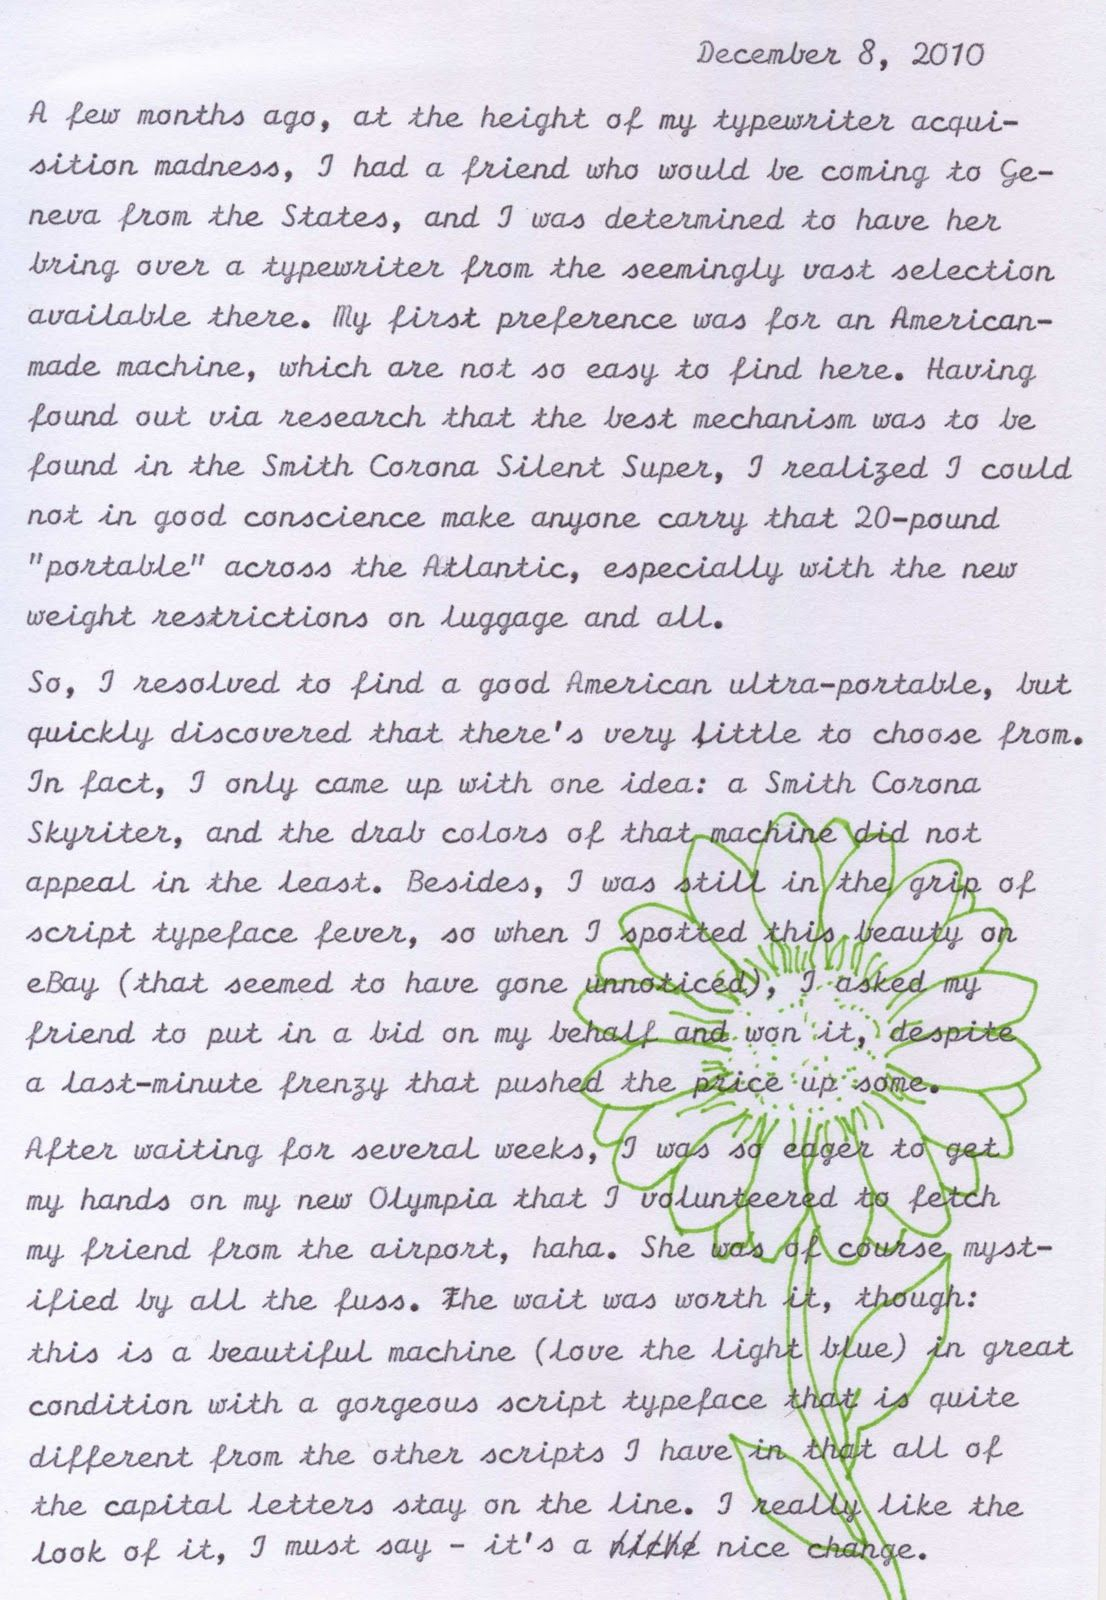 December 8, 2010
A few months ago, at the height of my typewriter acqui-
sition madness, I had a friend who would be coming to Ge-
neva from the States, and I was determined to have her
bring over a typewriter from the seemingly vast selection
available there. My first preference was for an American-
made machine, which are not so easy to find here. Having
found out via research that the best mechanism was to be
found in the Smith Corona Silent Super, I realized I could
not in good conscience make anyone carry that 20-pound
"portable" across the Atlantic, especially with the new
weight restrictions on luggage and all.
So, I resolved to find a good American ultra-portable, but
quickly discovered that there's very little to choose from.
In fact, I only came up with one idea: a Smith Corona
Skyriter, and the drab colors of that machine did not
appeal in the least. Besides, I was still in the grip of
script typeface fever, so when I spotted this beauty on
eBay (that seemed to have gone unnoticed), I asked my
friend to put in a bid on my behalf and won it, despite
a last-minute frenzy that pushed the price up some.
After waiting for several weeks, I was so eager to get
my hands on my new Olympia that I volunteered to fetch
my friend from the airport, haha. She was of course myst-
ified by all the fuss. The wait was worth it, though:
this is a beautiful machine (love the light blue) in great
condition with a gorgeous script typeface that is quite
different from the other scripts I have in that all of
the capital letters stay on the line. I really like the
look of it, I must say - it's a nice change.